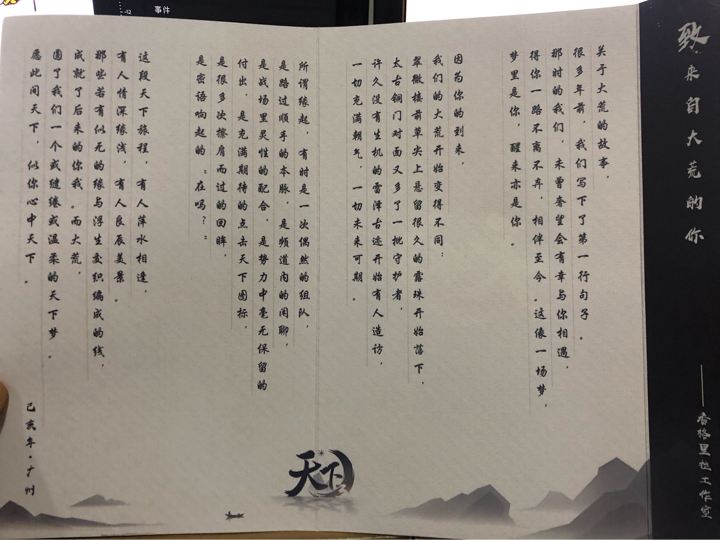 事件
致来自大荒的你
——香格里拉工作室
关于大荒的故事，
很多年前，我们写下了第一行句子。
那时的我们，未曾奢望会有幸与你相遇，
得你一路不离不弃，相伴至今。这像一场梦，
梦里是你，醒来亦是你。
因为你的到来，
我们的大荒开始变得不同：
翠微楼前草尖上悬留很久的露珠开始落下，
太古铜门对面又多了一批守护者，
许久没有生机的雷泽古迹开始有人造访，
一切充满朝气，一切未来可期。
所谓缘起，有时是一次偶然的组队，
是路过顺手的本脉，是频道内的闲聊，
是战场里灵性的配合，是势力中毫无保留的
付出，是充满期待的点击天下图标，
是很多次擦肩而过的回眸，
是密语响起的“在吗？”
这段天下旅程，有人萍水相逢，
有人情深缘浅，有人良辰美景。
那些若有似无的缘与浮生交织编成的线，
成就了后来的你我。而大荒，
圆了我们一个或缱绻或温柔的天下梦。
愿此间天下，似你心中天下。
己亥年·广州
天下